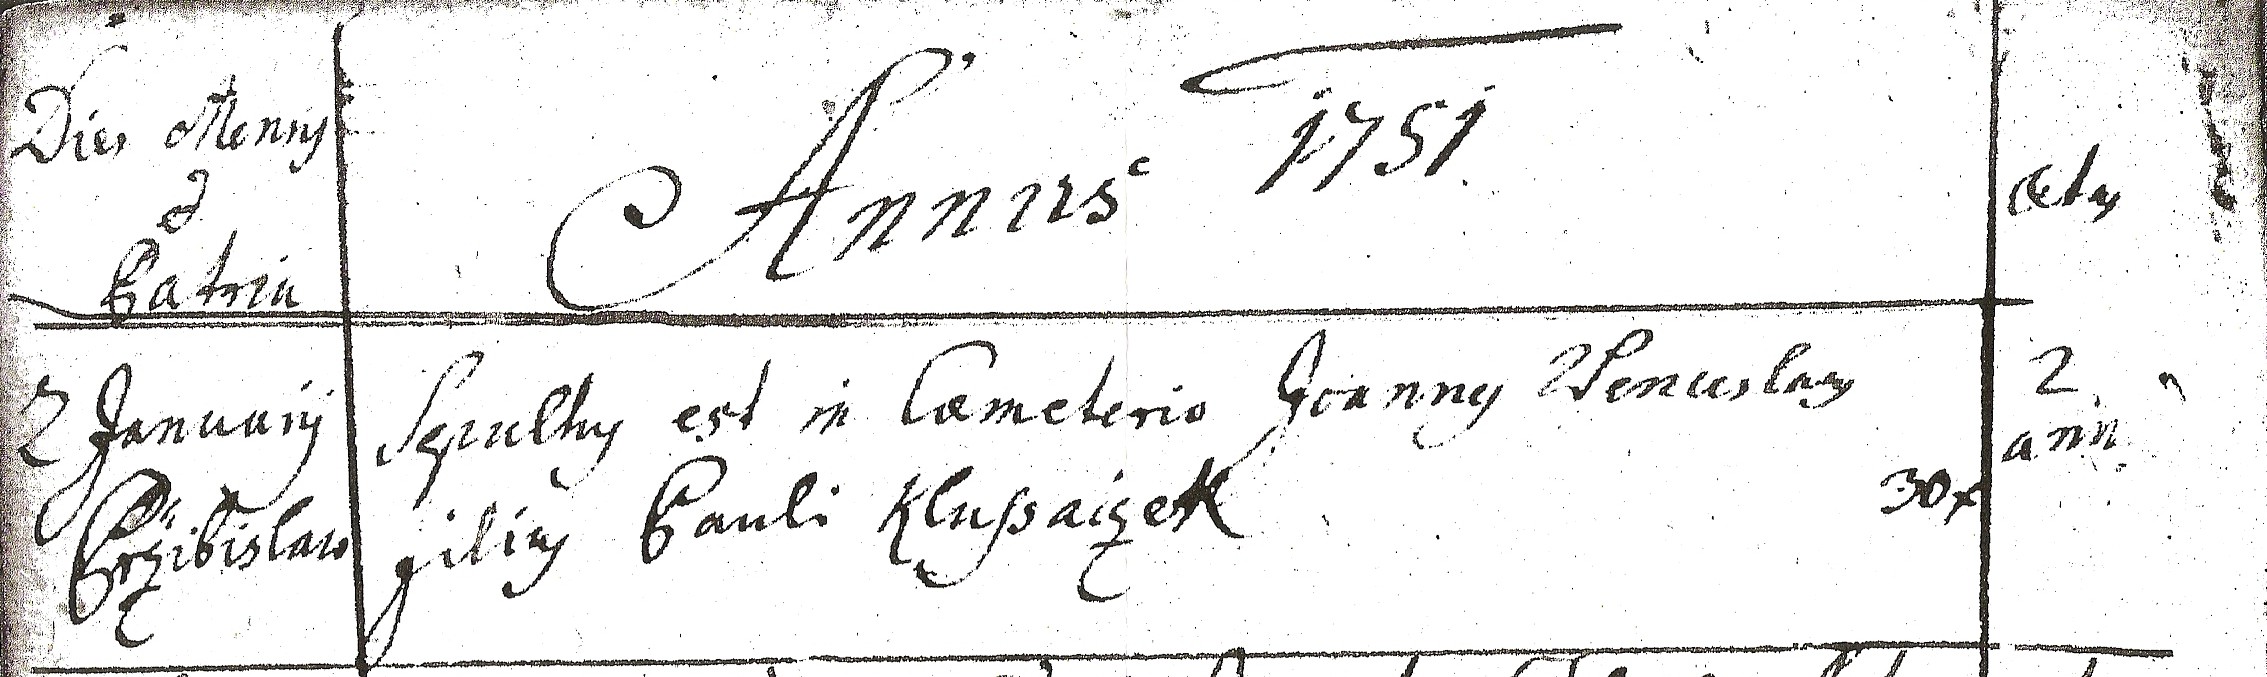 Dies Mensis
&
Patria
Annus 1751
Ætas
2 Januarij Sepultus est in Cœmeterio Joannes Wenceslaus 2
ann.
Ex Przibislaw filius Pauli Klussaczek 30 x